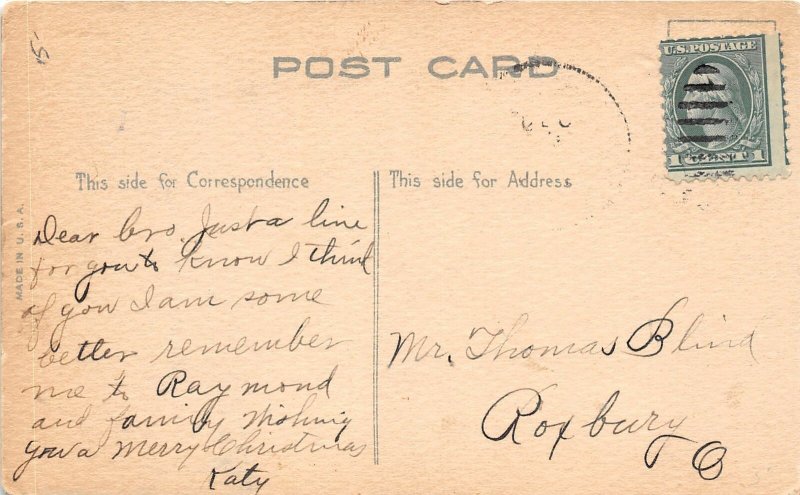 15
POST CARD
U.S. POSTAGE
DEC
1 CENT 1
This side for Correspondence
This side for Address
MADE IN U.S.A.
Dear Bro. Just a line
for you to know I think
of you I am some
better remember
me to Raymond
and family Wishing
you a Merry Christmas
Katy
Mr. Thomas Blind
Roxbury
O